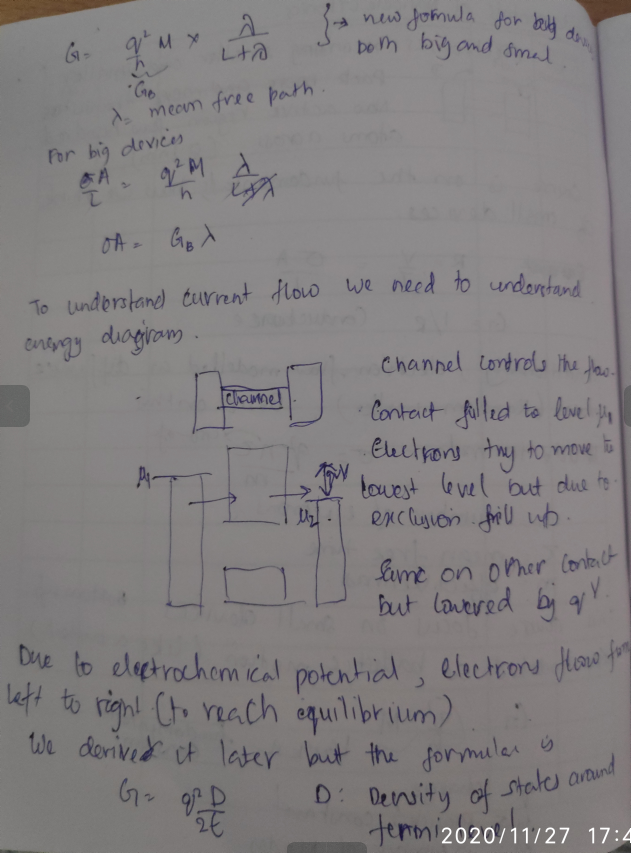 G = q² M / h × λ / L+λ } → new formula for both big and small
G_B
λ = mean free path.
For big devices
σA / L = q² M / h λ / L+λ
σA = G_B λ
To understand current flow we need to understand
energy diagram.
channel
Channel controls the flow.
Contact filled to level μ1
Electrons try to move to
lowest level but due to
exclusion fill up.
μ1
qV
μ2
Same on other contact
but lowered by qV.
Due to electrochemical potential, electrons flow from
left to right (to reach equilibrium)
We derived it later but the formula is
G = q² D / 2t
D: Density of states around
fermi level
2020/11/27 17:4